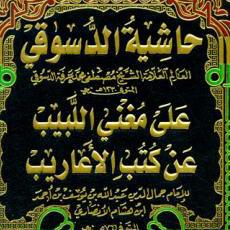 حاشية الدسوقي
العالم العلامة الشيخ مصطفى محمد عرفة الدسوقي
المتوفى ١٢٣٠هـ
على مغني اللبيب
عن كتب الأعاريب
للإمام جمال الدين عبد الله بن يوسف بن أحمد
ابن هشام الأنصاري
المتوفى